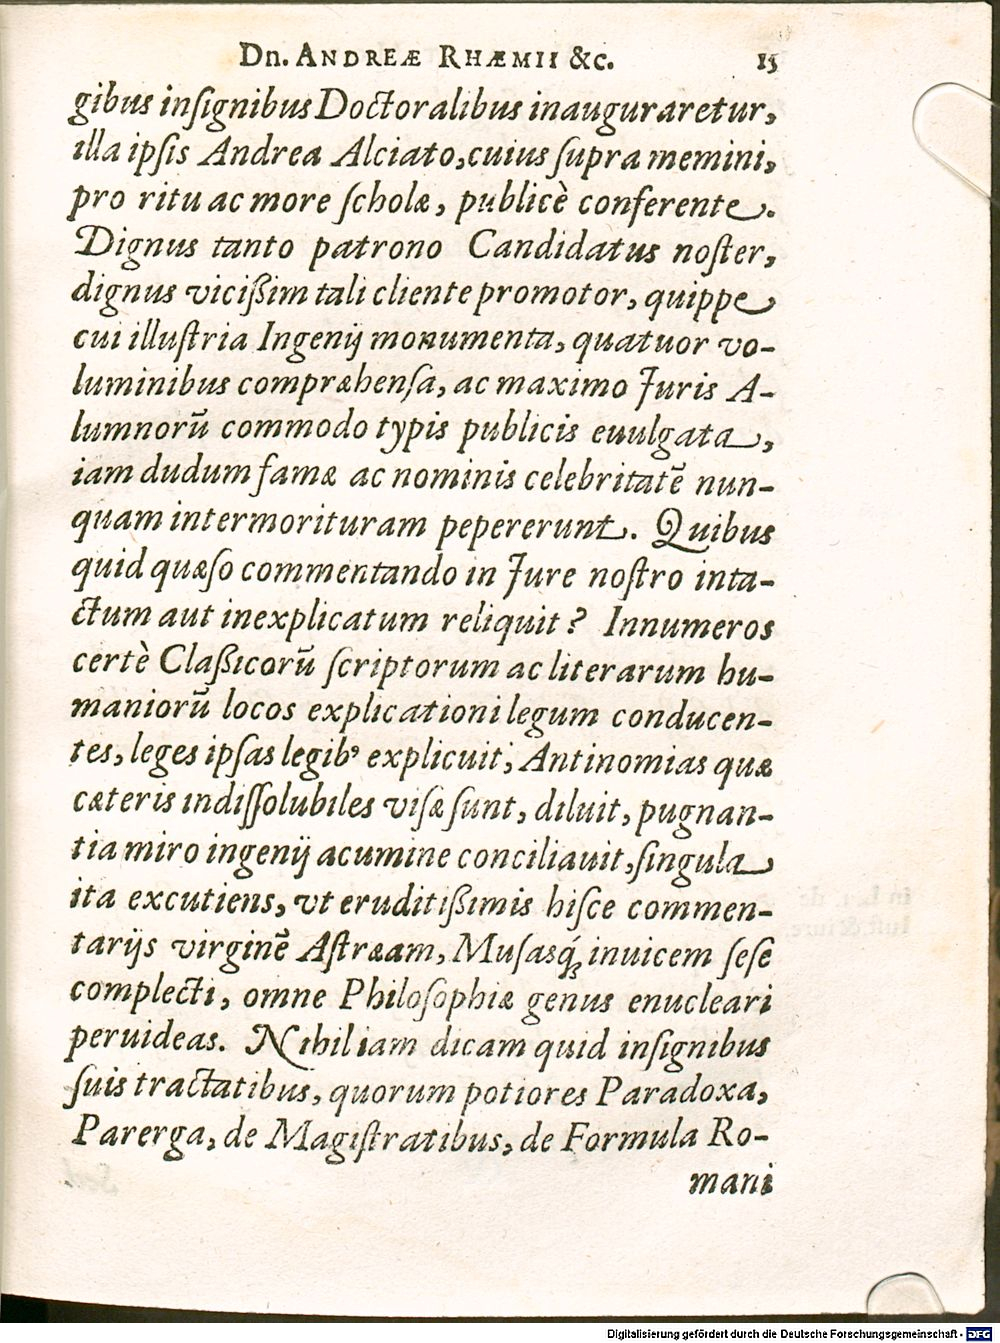 Dn. ANDREÆ RHÆMII &c. 15
gibus inſignibus Doctoralibus inauguraretur,
illa ipſis Andrea Alciato, cuius ſupra memini,
pro ritu ac more ſcholæ, publicè conferente.
Dignus tanto patrono Candidatus noſter,
dignus vicißim tali cliente promotor, quippe
cui illuſtria Ingenij monumenta, quatuor vo-
luminibus compræhenſa, ac maximo Juris A-
lumnorũ commodo typis publicis euulgata,
iam dudum famæ ac nominis celebritatẽ nun-
quam intermorituram pepererunt. Quibus
quid quæſo commentando in Jure noſtro inta-
ctum aut inexplicatum reliquit? Innumeros
certè Claßicorũ ſcriptorum ac literarum hu-
maniorũ locos explicationi legum conducen-
tes, leges ipſas legibꝰ explicuit; Antinomias quæ
cæteris indiſſolubiles viſæ ſunt, diluit, pugnan-
tia miro ingenij acumine conciliauit, ſingula
ita excutiens, vt eruditißimis hiſce commen-
tarijs virginẽ Aſtræam, Muſasq́; inuicem ſeſe
complecti, omne Philoſophiæ genus enucleari
peruideas. Nihil iam dicam quid inſignibus
ſuis tractatibus, quorum potiores Paradoxa,
Parerga, de Magiſtratibus, de Formula Ro-
mani
Digitalisierung gefördert durch die Deutsche Forschungsgemeinschaft - DFG